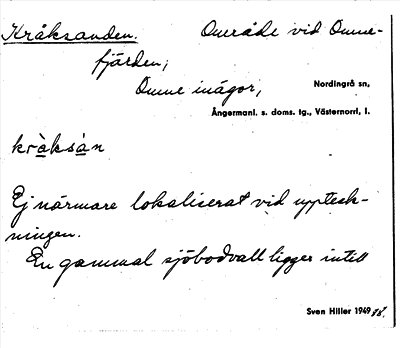 Kråksanden. Område vid Omne-
fjärden,
Omne inägor, Nordingrå sn,
Ångermanl. s. doms. tg., Västernorrl. l.
kråksàn
Ej närmare lokaliserat vid uppteck-
ningen.
En gammal sjöbodvall ligger intill
Sven Hiller 1949